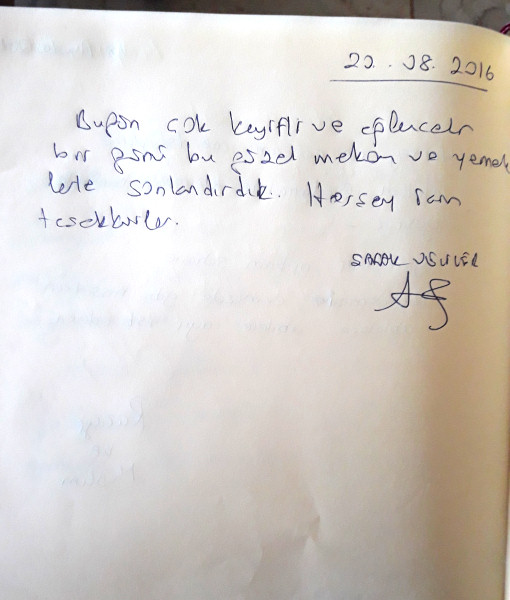 20.08.2016
Bugün çok keyifli ve eğlenceli
bir günü bu güzel mekan ve yemek
lerle sonlandırdık. Herşey için
teşekkürler.